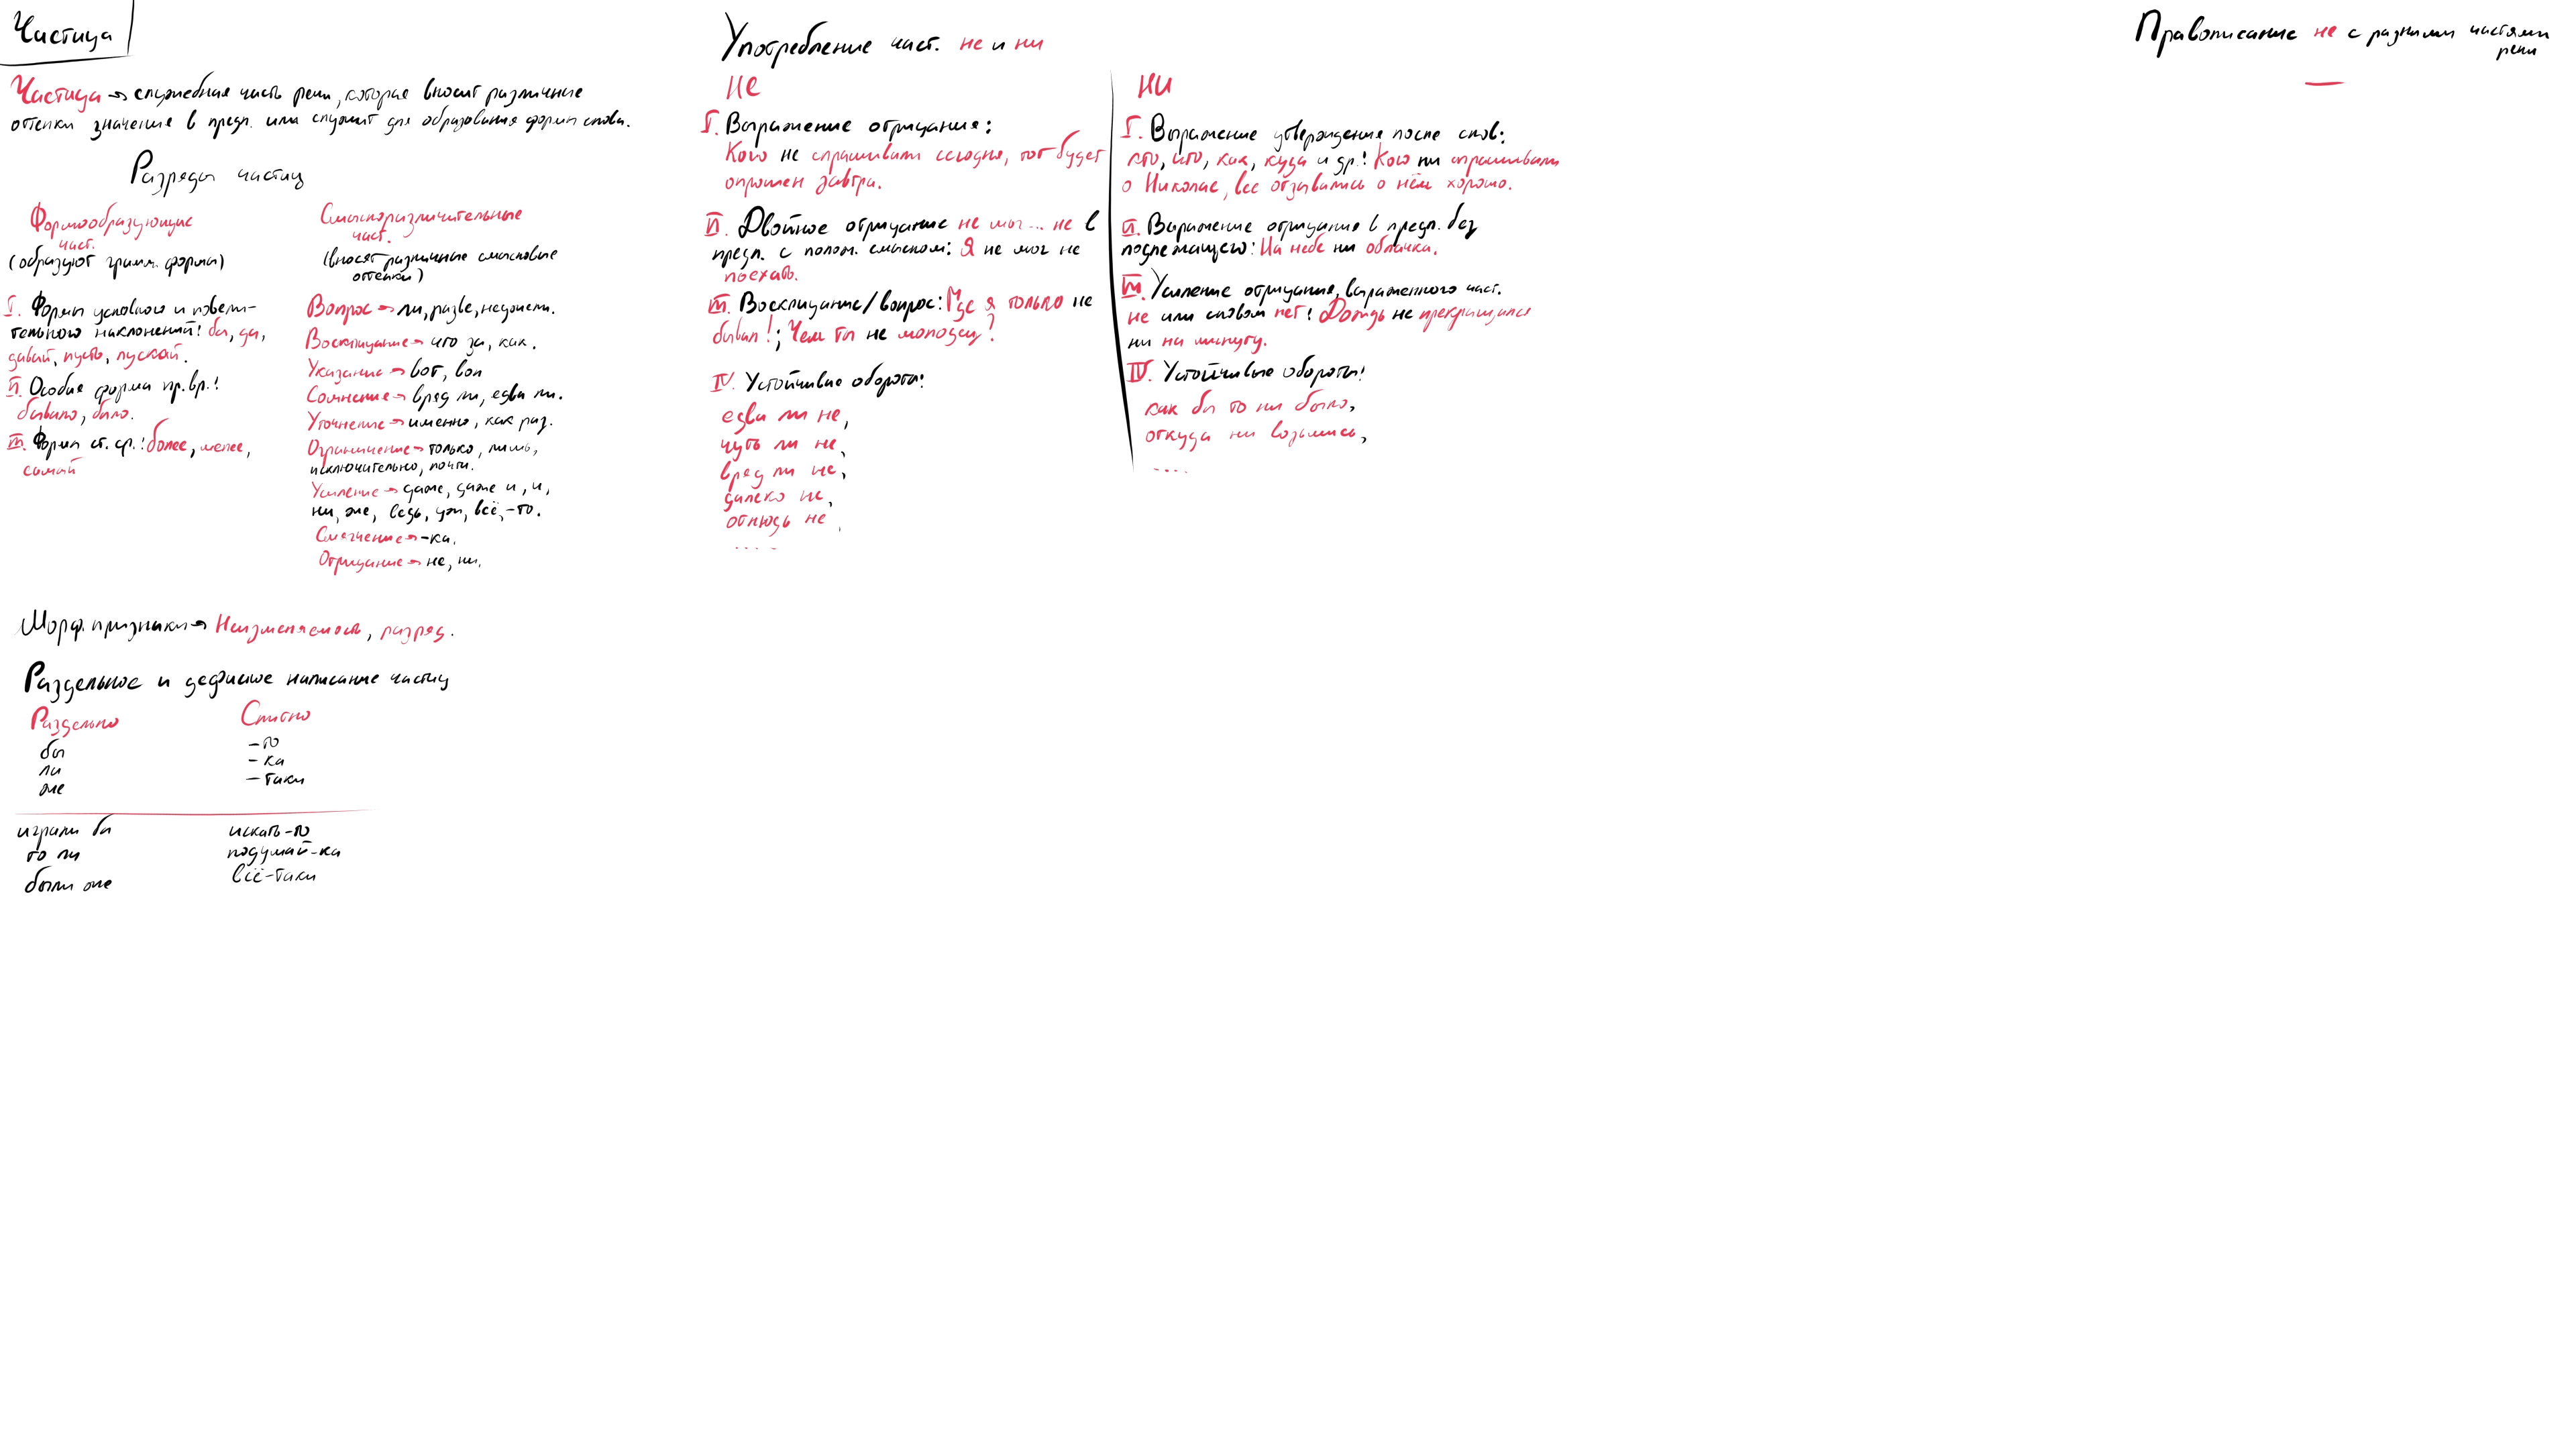 Частица
Частица → служебная часть речи, которая вносит различные
оттенки значение в предл. или служит для образования форм слова.
Разряды частиц
Формообразующие
част.
(образуют грамм. формы)
I. Формы условного и повели-
тельного наклонений: бы, да,
давай, пусть, пускай.
II. Особая форма пр.вр.:
бывало, было.
III. Формы ст. ср.: более, менее,
самый
Смыслоразличительные
част.
(вносят различные смысловые
оттенки)
Вопрос → ли, разве, неужели.
Восклицание → что за, как.
Указание → вот, вон
Сомнение → вряд ли, едва ли.
Уточнение → именно, как раз.
Ограничение → только, лишь,
исключительно, почти.
Усиление → даже, даже и, и,
ни, же, ведь, уж, всё, -то.
Смягчение → -ка.
Отрицание → не, ни.
Морф. признаки → Неизменяемость, разряд.
Раздельное и дефисное написание частиц
Раздельно
бы
ли
же
Слитно
-то
-ка
-таки
играли бы
то ли
были же
искать-то
подумай-ка
всё-таки
Употребление част. не и ни
не
I. Выражение отрицание:
Кого не спрашивали сегодня, тот будет
опрошен завтра.
II. Двойное отрицание не мог... не в
предл. с полож. смыслом: Я не мог не
поехать.
III. Восклицание/вопрос: Где я только не
бывал!; Чем ты не молодец?
IV. Устойчивые обороты:
едва ли не,
чуть ли не,
вряд ли не,
далеко не,
отнюдь не,
....
ни
I. Выражение утверждение после слов:
кто, что, как, куда и др.: Кого ни спрашивали
о Николае, все отзывались о нём хорошо.
II. Выражение отрицание в предл. без
подлежащего: На небе ни облачка.
III. Усиление отрицания, выраженного част.
не или словом нет: Дождь не прекращался
ни на минуту.
IV. Устойчивые обороты:
как бы то ни было,
откуда ни возьмись,
....
Правописание не с разными частями
речи